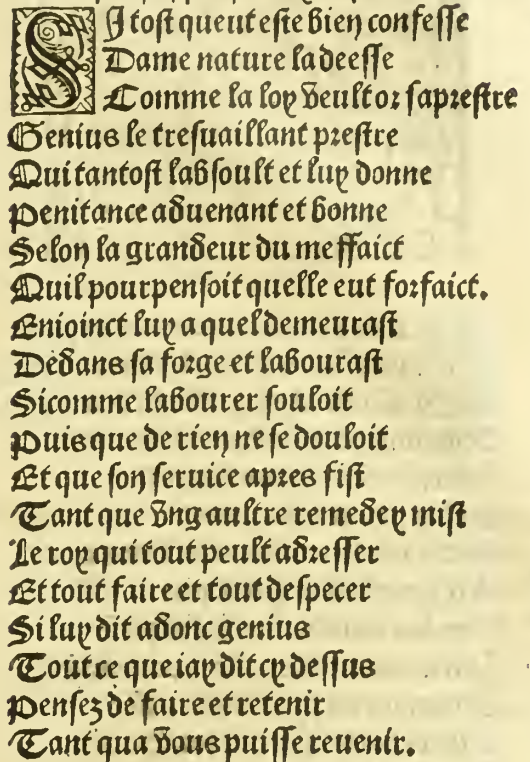 SI tost queut este bien confesse
Dame nature la deesse
Comme la loy veult or saprestre
Genius le tresuaillant prestre
Qui tantost labsoult et luy donne
Penitance aduenant et bonne
Selon la grandeur du meffaict
Quil pourpensoit quelle eut forfaict.
Enioinct luy a quel demeurast
Dedans sa forge et labourast
Sicomme labourer souloit
Puis que de rien ne se douloit
Et que son seruice apres fist
Tant que vng aultre remede y mist
Le roy qui tout peult adresser
Et tout faire et tout despecer
Si luy dit adonc genius
Tout ce que iay dit cy dessus
Pensez de faire et retenir
Tant qua vous puisse reuenir.